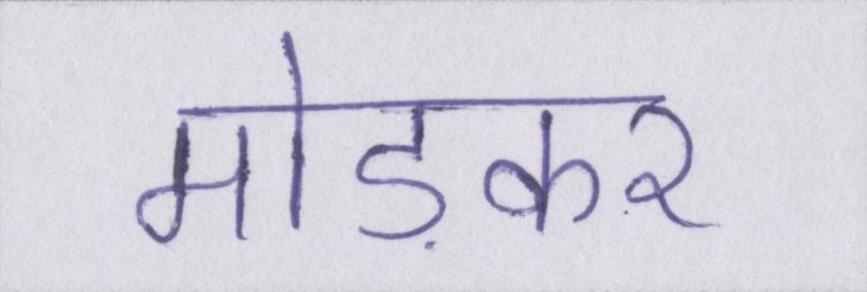 मोड़कर